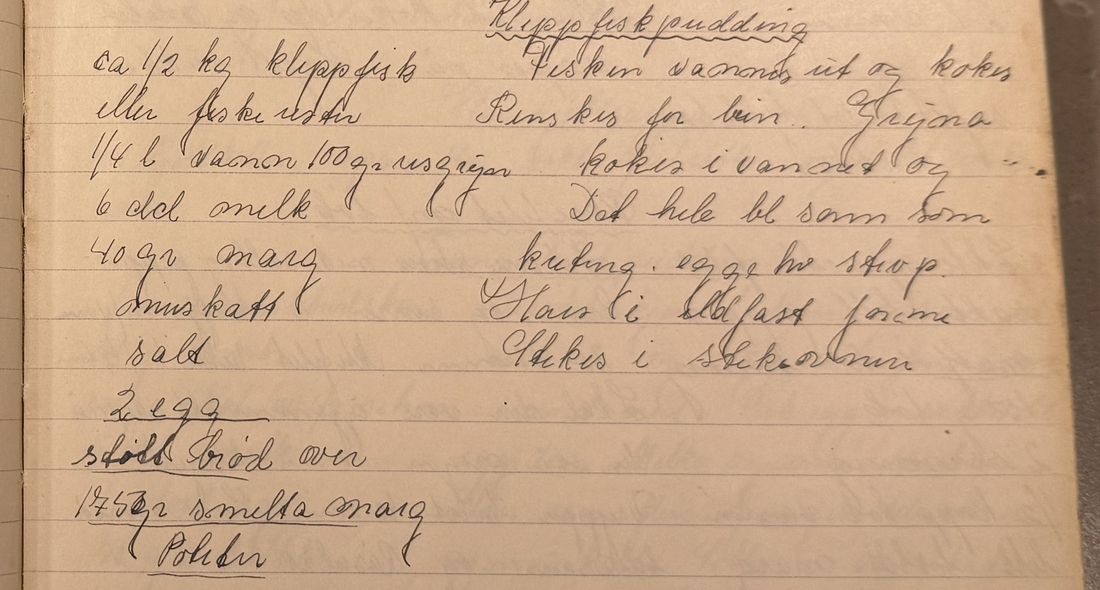 Klippfiskpudding
ca 1/2 kg klippfisk
eller fiskerester
1/4 l vann 100 gr risgryn
6 dcl melk
40 gr marg
muskatt
salt
2 egg
støtt brød over
175 gr smelta marg
Poteter
Fisken vannes ut og kokes
Renskes for bein. Gryna
kokes i vannet og
Det hele bl sann som
i ildfast forme
Stekes i stekeovnen